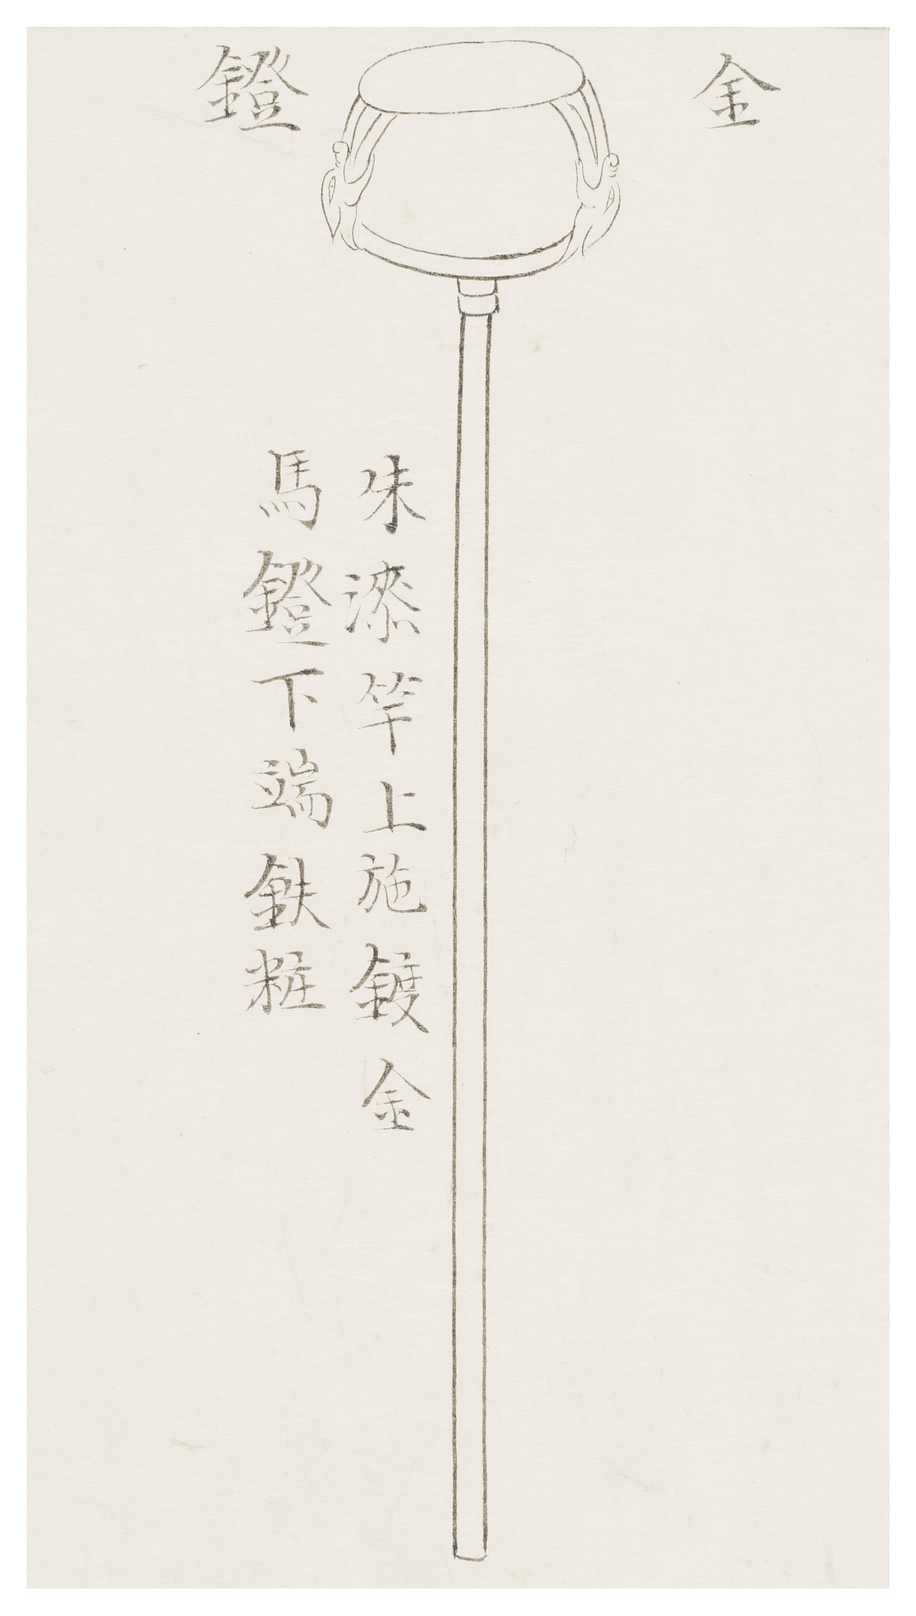 金鐙
朱漆竿上施鍍金
馬鐙下端鉄粧